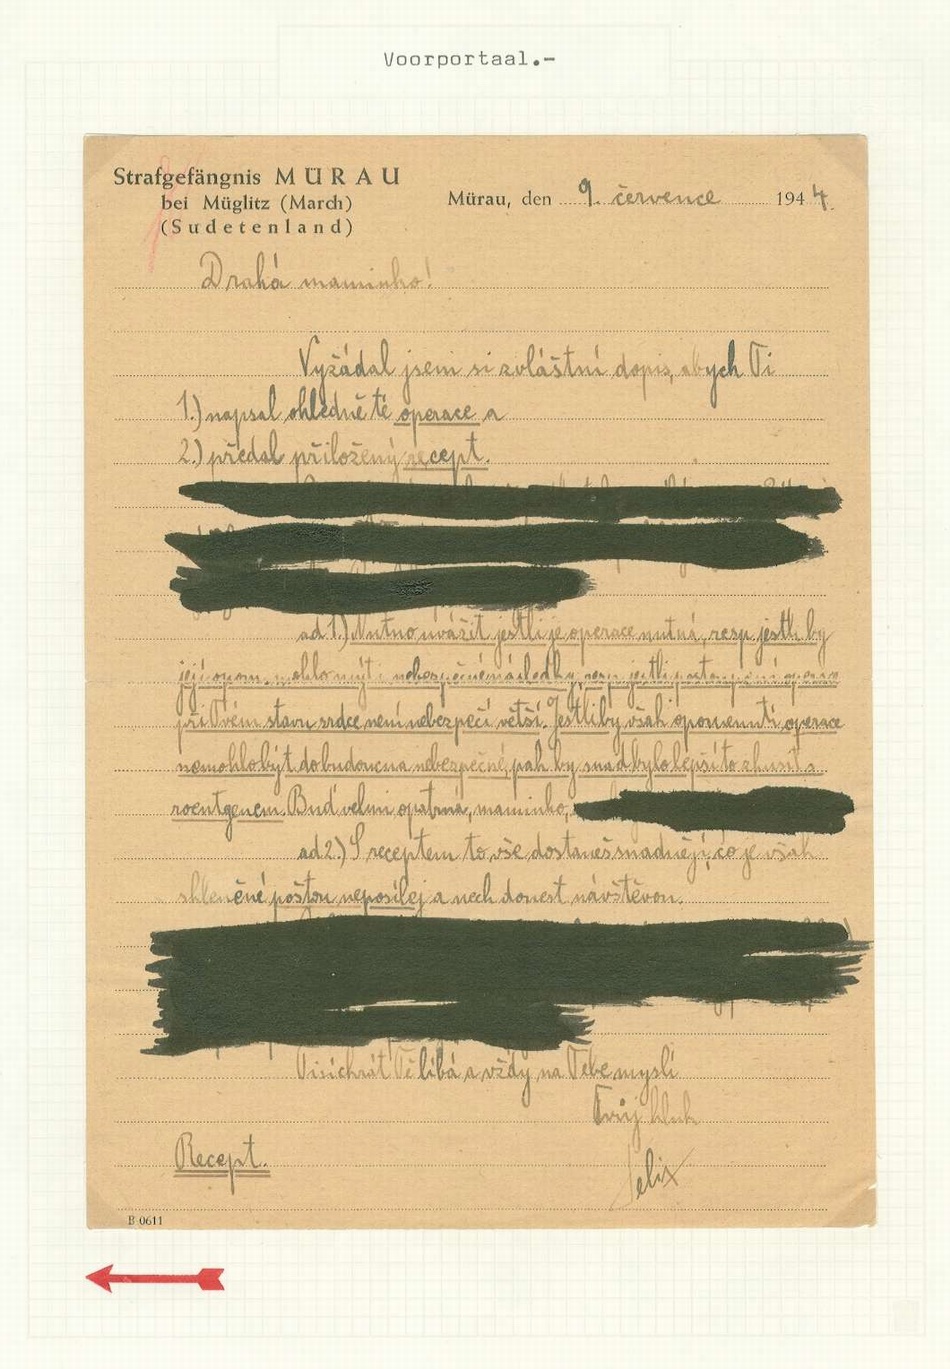 Voorportaal.-
Strafgefängnis MÜRAU
bei Müglitz (March)
(Sudetenland)
Mürau, den 9. července 1944.
Drahá maminko!
Vyžádal jsem si zvláštní dopis, abych Ti
1.) napsal ohledně té operace a
2.) předal přiložený recept.
ad 1.) Nutno uvážit jestli je operace nutná, resp. jestli by
její opom. mohlo mýti nebezpečné následky, resp. jestli operace
při Tvém stavu srdce není nebezpečí větší. Jestli by však opomenutí operace
nemohlo být do budoucna nebezpečné, pak by snad bylo lepší to zkusit s
roentgenem. Buď velmi opatrná, maminko,
ad 2.) S receptem to vše dostaneš snadněji, co je však
skleněné poštou neposílej a nech donest návštěvou.
Tisíckrát Tě líbá a vždy na Tebe myslí
Tvůj kluk
Felix
Recept.
B 0611